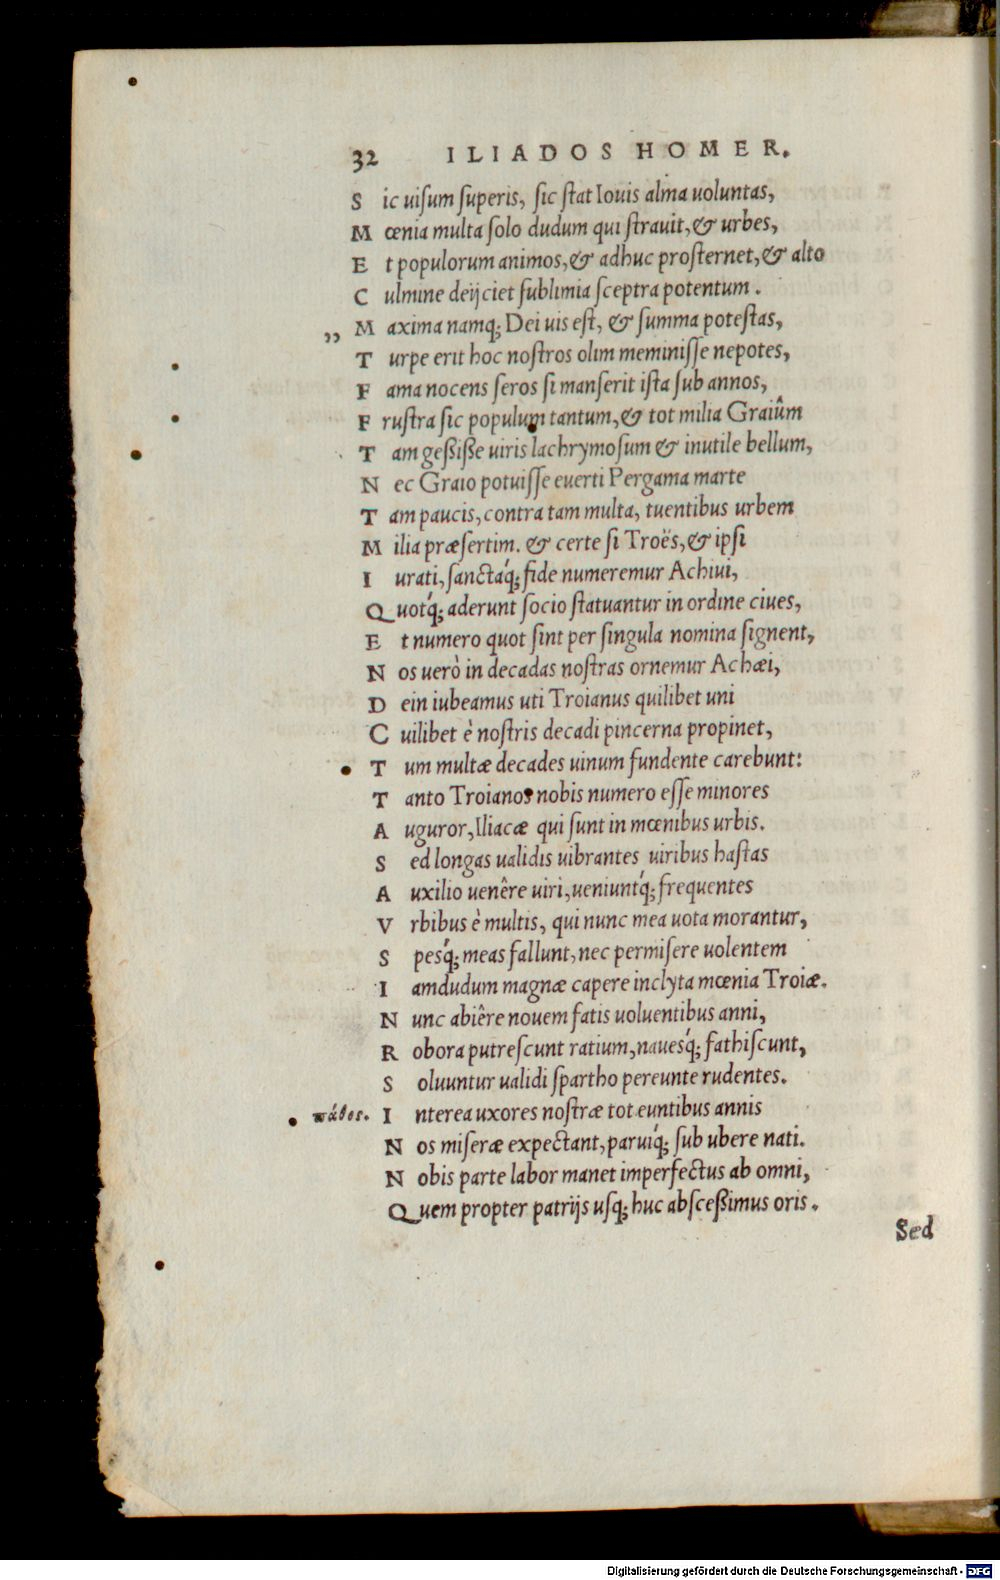 32 ILIADOS HOMER.
S ic uiſum ſuperis, ſic ſtat Iouis alma uoluntas,
M œnia multa ſolo dudum qui ſtrauit, & urbes,
E t populorum animos, & adhuc proſternet, & alto
C ulmine deijciet ſublimia ſceptra potentum.
„ M axima namq; Dei uis eſt, & ſumma poteſtas,
T urpe erit hoc noſtros olim meminiſſe nepotes,
F ama nocens ſeros ſi manſerit iſta ſub annos,
F ruſtra ſic populum tantum, & tot milia Graiûm
T am geßiße uiris lachrymoſum & inutile bellum,
N ec Graio potuiſſe euerti Pergama marte
T am paucis, contra tam multa, tuentibus urbem
M ilia præſertim. & certe ſi Troës, & ipſi
I urati, ſanctáq; fide numeremur Achiui,
Q uotq́; aderunt ſocio ſtatuantur in ordine ciues,
E t numero quot ſint per ſingula nomina ſignent,
N os uerò in decadas noſtras ornemur Achæi,
D ein iubeamus uti Troianus quilibet uni
C uilibet è noſtris decadi pincerna propinet,
T um multæ decades uinum fundente carebunt:
T anto Troianos nobis numero eſſe minores
A uguror, Iliacæ qui ſunt in mœnibus urbis.
S ed longas ualidis uibrantes uiribus haſtas
A uxilio uenêre uiri, ueniuntq́; frequentes
V rbibus è multis, qui nunc mea uota morantur,
S pesq́; meas fallunt, nec permiſere uolentem
I amdudum magnæ capere inclyta mœnia Troiæ.
N unc abiêre nouem fatis uoluentibus anni,
R obora putreſcunt ratium, nauesq́; fathiſcunt,
S oluuntur ualidi ſpartho pereunte rudentes.
πάθος. I nterea uxores noſtræ tot euntibus annis
N os miſeræ expectant, paruiq́; ſub ubere nati.
N obis parte labor manet imperfectus ab omni,
Q uem propter patrijs uſq; huc abſceßimus oris.
Sed
Digitalisierung gefördert durch die Deutsche Forschungsgemeinschaft - DFG